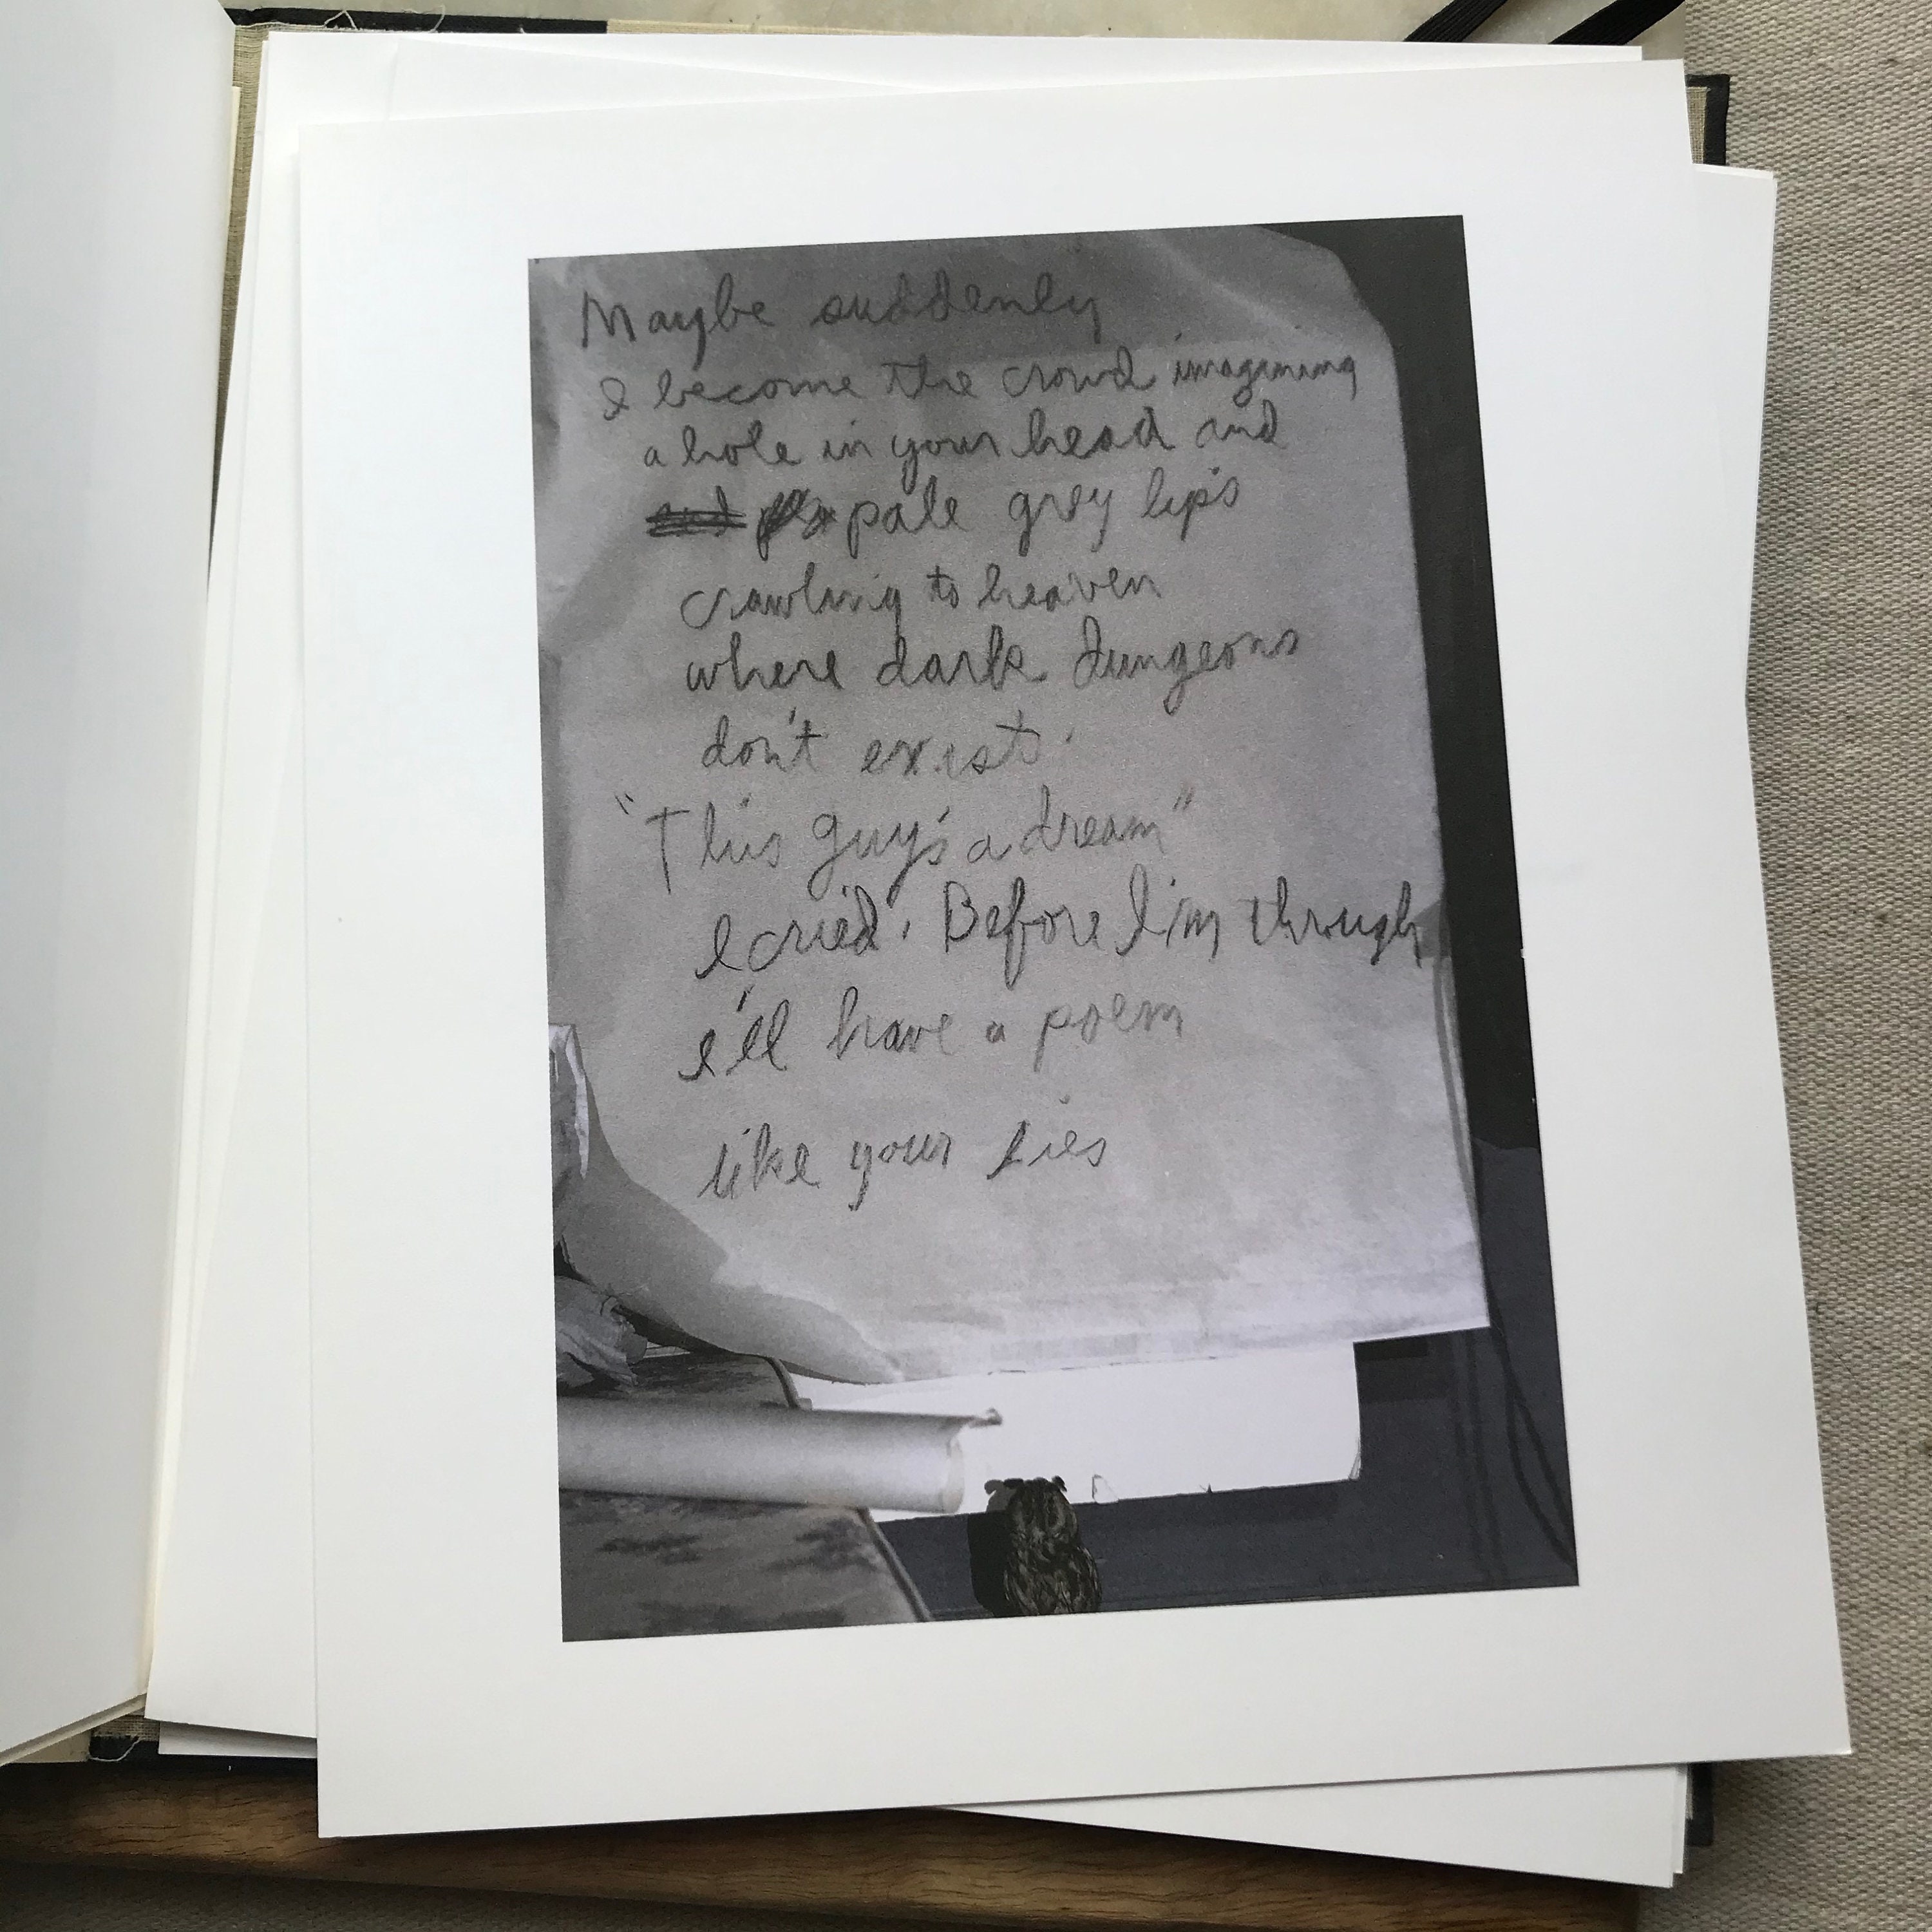 Maybe suddenly
I become the crowd imagining
a hole in your head and
pale grey lips
crawling to heaven
where dark dungeons
don't exist.
"This guy's a dream"
I cried. Before I'm through
I'll have a poem
like your lies